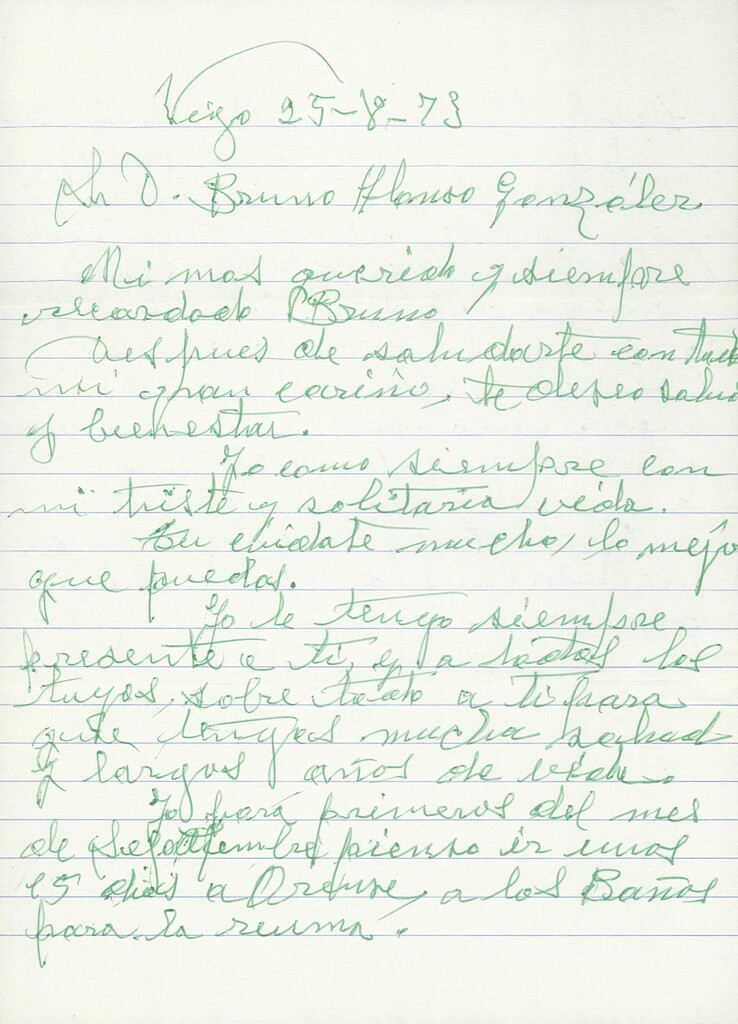 Vigo 25-8-73
Sr D. Bruno Alonso González
Mi mas querido y siempre
recordado Bruno
Despues de saludarte con todo
mi gran cariño, te deseo salud
y bienestar.
Yo como siempre con
mi triste y solitaria vida.
Tu cuidate mucho, lo mejor
que puedas.
Yo te tengo siempre
presente a ti, y a todos los
tuyos, sobre todo a ti para
que tengas mucha salud
y largos años de vida.
Yo para primeros del mes
de Septiembre pienso ir unos
15 dias a Orense, a los Baños
para la reuma.